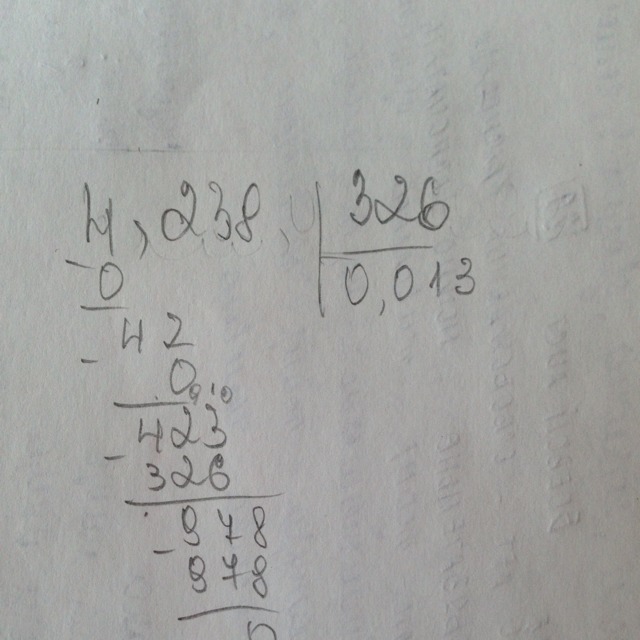 4,238 326
-0 0,013
-42
0
-423
326
-978
978
0